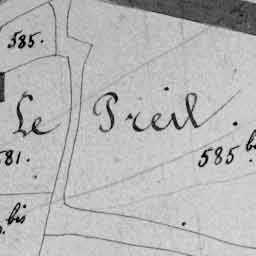 585.
Le Preil.
581.
585 bis
bis